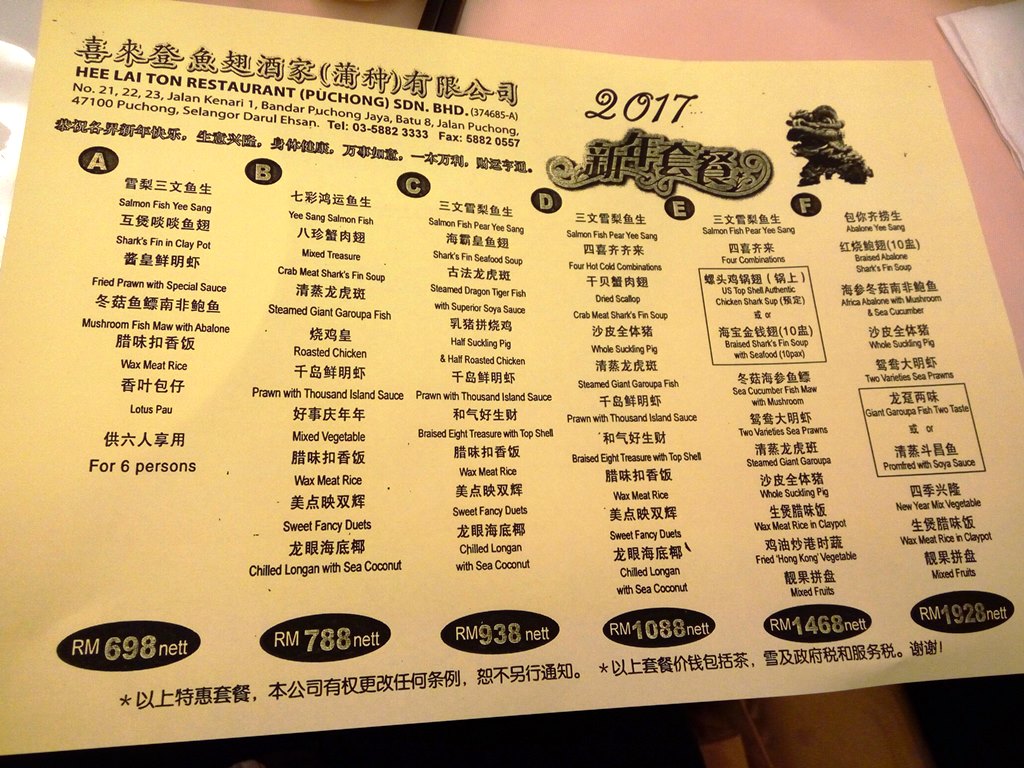 喜來登魚翅酒家(蒲种)有限公司
HEE LAI TON RESTAURANT (PUCHONG) SDN. BHD. (374685-A)
No. 21, 22, 23, Jalan Kenari 1, Bandar Puchong Jaya, Batu 8, Jalan Puchong,
47100 Puchong, Selangor Darul Ehsan. Tel: 03-5882 3333 Fax: 5882 0557
恭祝各界新年快乐，生意兴隆，身体健康，万事如意，一本万利，财运亨通。
2017
新年套餐
A
雪梨三文鱼生
Salmon Fish Yee Sang
互煲啖啖鱼翅
Shark's Fin in Clay Pot
酱皇鲜明虾
Fried Prawn with Special Sauce
冬菇鱼鳔南非鲍鱼
Mushroom Fish Maw with Abalone
腊味扣香饭
Wax Meat Rice
香叶包仔
Lotus Pau
供六人享用
For 6 persons
RM 698 nett
B
七彩鸿运鱼生
Yee Sang Salmon Fish
八珍蟹肉翅
Mixed Treasure
Crab Meat Shark's Fin Soup
清蒸龙虎斑
Steamed Giant Garoupa Fish
烧鸡皇
Roasted Chicken
千岛鲜明虾
Prawn with Thousand Island Sauce
好事庆年年
Mixed Vegetable
腊味扣香饭
Wax Meat Rice
美点映双辉
Sweet Fancy Duets
龙眼海底椰
Chilled Longan with Sea Coconut
RM 788 nett
C
三文雪梨鱼生
Salmon Fish Pear Yee Sang
海霸皇鱼翅
Shark's Fin Seafood Soup
古法龙虎斑
Steamed Dragon Tiger Fish
with Superior Soya Sauce
乳猪拼烧鸡
Half Suckling Pig
& Half Roasted Chicken
千岛鲜明虾
Prawn with Thousand Island Sauce
和气好生财
Braised Eight Treasure with Top Shell
腊味扣香饭
Wax Meat Rice
美点映双辉
Sweet Fancy Duets
龙眼海底椰
Chilled Longan
with Sea Coconut
RM 938 nett
D
三文雪梨鱼生
Salmon Fish Pear Yee Sang
四喜齐齐来
Four Hot Cold Combinations
干贝蟹肉翅
Dried Scallop
Crab Meat Shark's Fin Soup
沙皮全体猪
Whole Suckling Pig
清蒸龙虎斑
Steamed Giant Garoupa Fish
千岛鲜明虾
Prawn with Thousand Island Sauce
和气好生财
Braised Eight Treasure with Top Shell
腊味扣香饭
Wax Meat Rice
美点映双辉
Sweet Fancy Duets
龙眼海底椰
Chilled Longan
with Sea Coconut
RM 1088 nett
E
三文雪梨鱼生
Salmon Fish Pear Yee Sang
四喜齐来
Four Combinations
螺头鸡锅翅（锅上）
US Top Shell Authentic
Chicken Shark Sup (预定)
或 or
海宝金钱翅(10盅)
Braised Shark's Fin Soup
with Seafood (10pax)
冬菇海参鱼鳔
Sea Cucumber Fish Maw
with Mushroom
鸳鸯大明虾
Two Varieties Sea Prawns
清蒸龙虎班
Steamed Giant Garoupa
沙皮全体猪
Whole Suckling Pig
生煲腊味饭
Wax Meat Rice in Claypot
鸡油炒港时蔬
Fried 'Hong Kong' Vegetable
靓果拼盘
Mixed Fruits
RM 1468 nett
F
包你齐捞生
Abalone Yee Sang
红烧鲍翅(10盅)
Braised Abalone
Shark's Fin Soup
海参冬菇南非鲍
Africa Abalone with Mushroom
& Sea Cucumber
沙皮全体猪
Whole Suckling Pig
鸳鸯大明虾
Two Varieties Sea Prawns
龙趸两味
Giant Garoupa Fish Two Taste
或 or
清蒸斗昌鱼
Promfred with Soya Sauce
四季兴隆
New Year Mix Vegetable
生煲腊味饭
Wax Meat Rice in Claypot
靓果拼盘
Mixed Fruits
RM 1928 nett
*以上特惠套餐，本公司有权更改任何条例，恕不另行通知。 *以上套餐价钱包括茶，雪及政府税和服务税。谢谢!